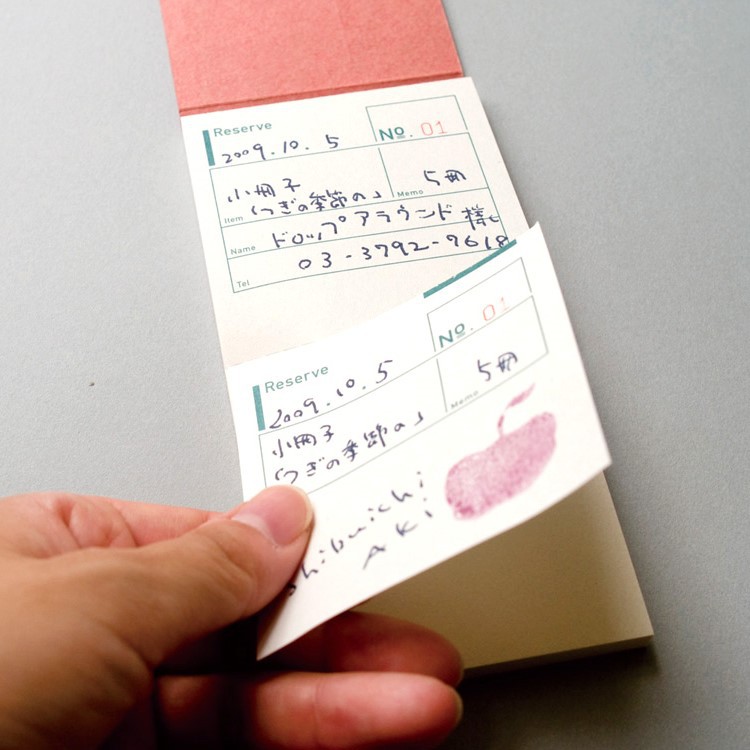 Reserve
2009.10.5
No. 01
小冊子
「つぎの季節の」
5冊
Item
Memo
Name ドロップアラウンド 様
03-3792-7618
Tel
Reserve
2009.10.5
No. 01
小冊子
「つぎの季節の」
5冊
Memo
Shibuichi
AKi